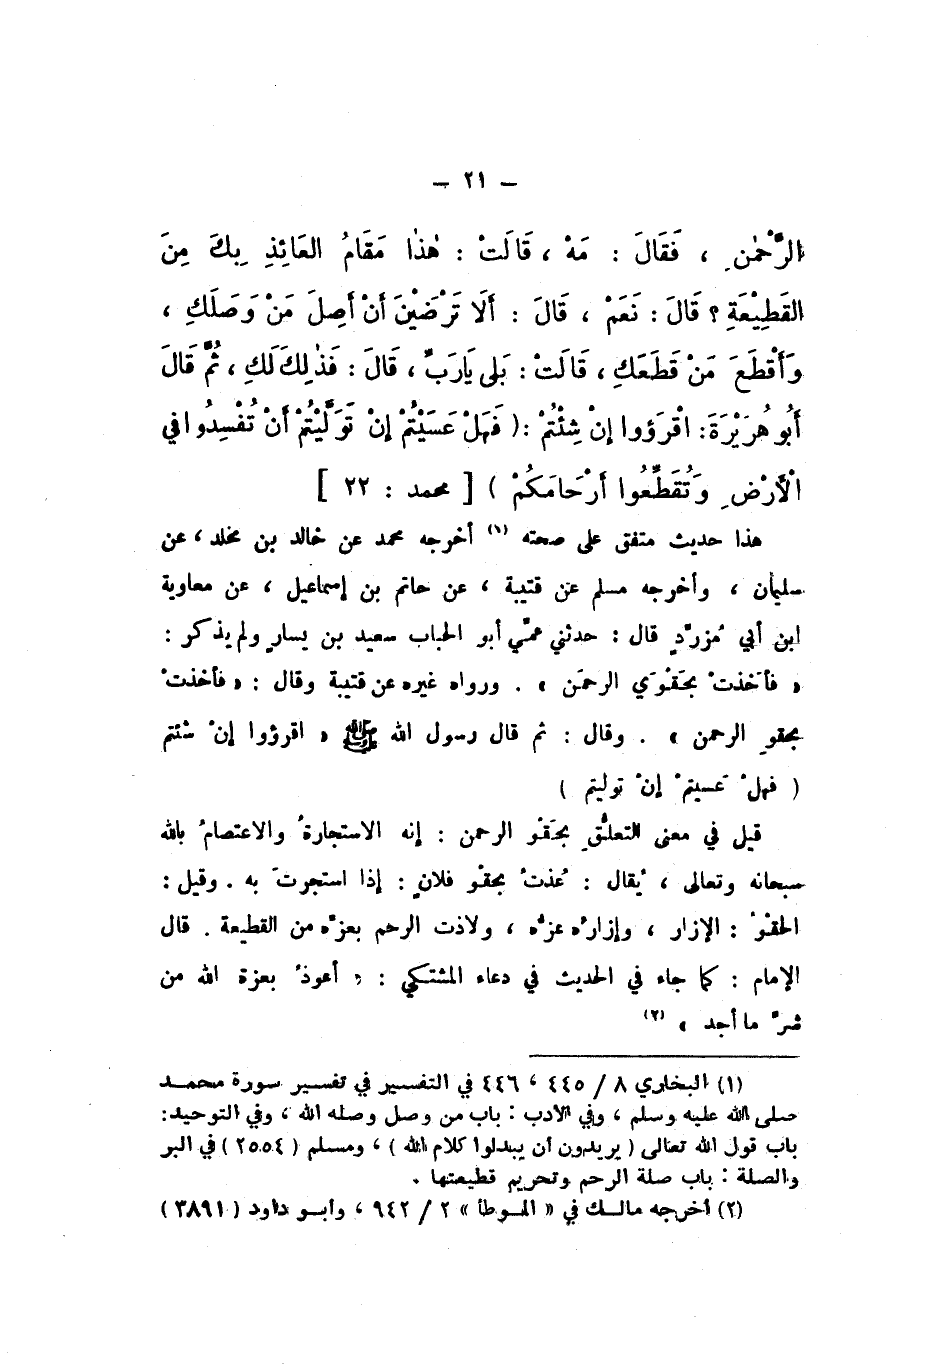 — ٢١ —
الرَّحْمٰنِ ، فَقَالَ : مَهْ ، قَالَتْ : هٰذا مَقَامُ العَائِذِ بِكَ مِنَ
القَطِيْعَةِ ؟ قَالَ : نَعَمْ ، قَالَ : أَلَا تَرْضَيْنَ أَنْ أَصِلَ مَنْ وَصَلَكِ ،
وَأَقْطَعَ مَنْ قَطَعَكِ ، قَالَتْ : بَلى يَارَبِّ ، قَالَ : فَذٰلِكَ لَكِ ، ثُمَّ قَالَ
أَبُو هُرَيْرَةَ : اقْرَؤوا إنْ شِئْتُمْ : ( فَهَلْ عَسَيْتُمْ إنْ تَوَلَّيْتُمْ أَنْ تُفْسِدُوا في
الْأَرْضِ وَتُقَطِّعُوا أَرْحَامَكُمْ ) [ محمد : ٢٢ ]
هذا حديث متفق على صحته (١) أخرجه محمد عن خالد بن مخلد ، عن
سليمان ، وأخرجه مسلم عن قتيبة ، عن حاتم بن إسماعيل ، عن معاوية
ابن أبي مُزرِّدٍ قال : حدثني عمّي أبو الحباب سعيد بن يسارٍ ولم يذكر :
« فأَخذتْ بحَقْوَي الرحمَن » . ورواه غيره عن قتيبة وقال : « فأخذتْ
بحقوِ الرحمن » . وقال : ثم قال رسول الله ﷺ « اقرؤوا إنْ شئتم
( فهلْ عَسيتمْ إنْ توليتم )
قيل في معنى التعلُّقِ بحَقْوِ الرحمن : إنه الاستجارةُ والاعتصامُ بالله
سبحانه وتعالى ، يُقال : عُذتُ بحقوِ فلانٍ : إذا استجرتَ به . وقيل :
الحقْوُ : الإزار ، وإزارُه عزُّه ، ولاذت الرحم بعزِّه من القطيعة . قال
الإمام : كما جاء في الحديث في دعاء المشتكي : « أعوذُ بعزة الله من
شرِّ ما أجد » (٢)
(١) البخاري ٨ / ٤٤٥ ، ٤٤٦ في التفسير في تفسير سورة محمد
صلى الله عليه وسلم ، وفي الأدب : باب من وصل وصله الله ، وفي التوحيد :
باب قول الله تعالى ( يريدون أن يبدلوا كلام الله ) ، ومسلم ( ٢٥٥٤ ) في البر
والصلة : باب صلة الرحم وتحريم قطيعتها .
(٢) أخرجه مالك في « الموطأ » ٢ / ٩٤٢ ، وأبو داود ( ٣٨٩١ )